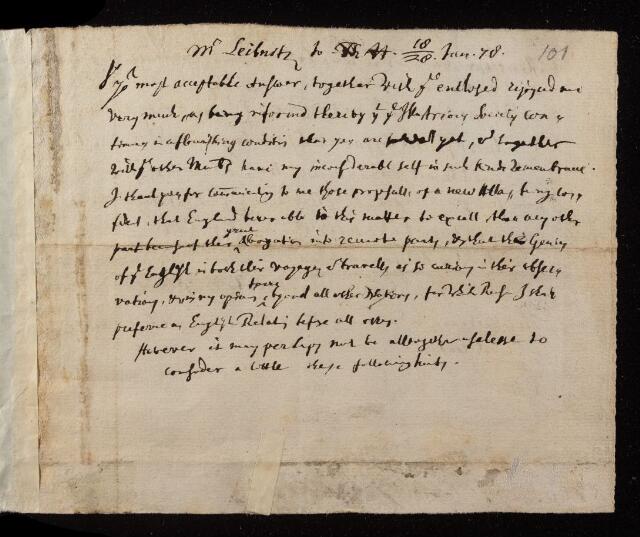 Mr Leibnitz to 18/28 Jan. 78. 101
Sr yor most acceptable Answer, together with ye enclosed rejoyced me
very much, as being informd thereby yt ye Illustrious Society con-
tinues in a flourishing condition that you are well yet, & together
with ye other Membrs have my inconsiderable self in such kind remembrance.
I thank you for communicating to me those proposalls of a new Atlas, being con-
fident, that England being able in this matter to excell than any other
their great Navigation into remote parts, & that the Genius
of ye English in both their voyages & travells is so curious in their obser-
vations, & in my opinion beyond all other Nations, for wch Reason I shall
preferre an English Relation before all others.
However it may perhaps not be altogether uselesse to
consider a little these following hints.